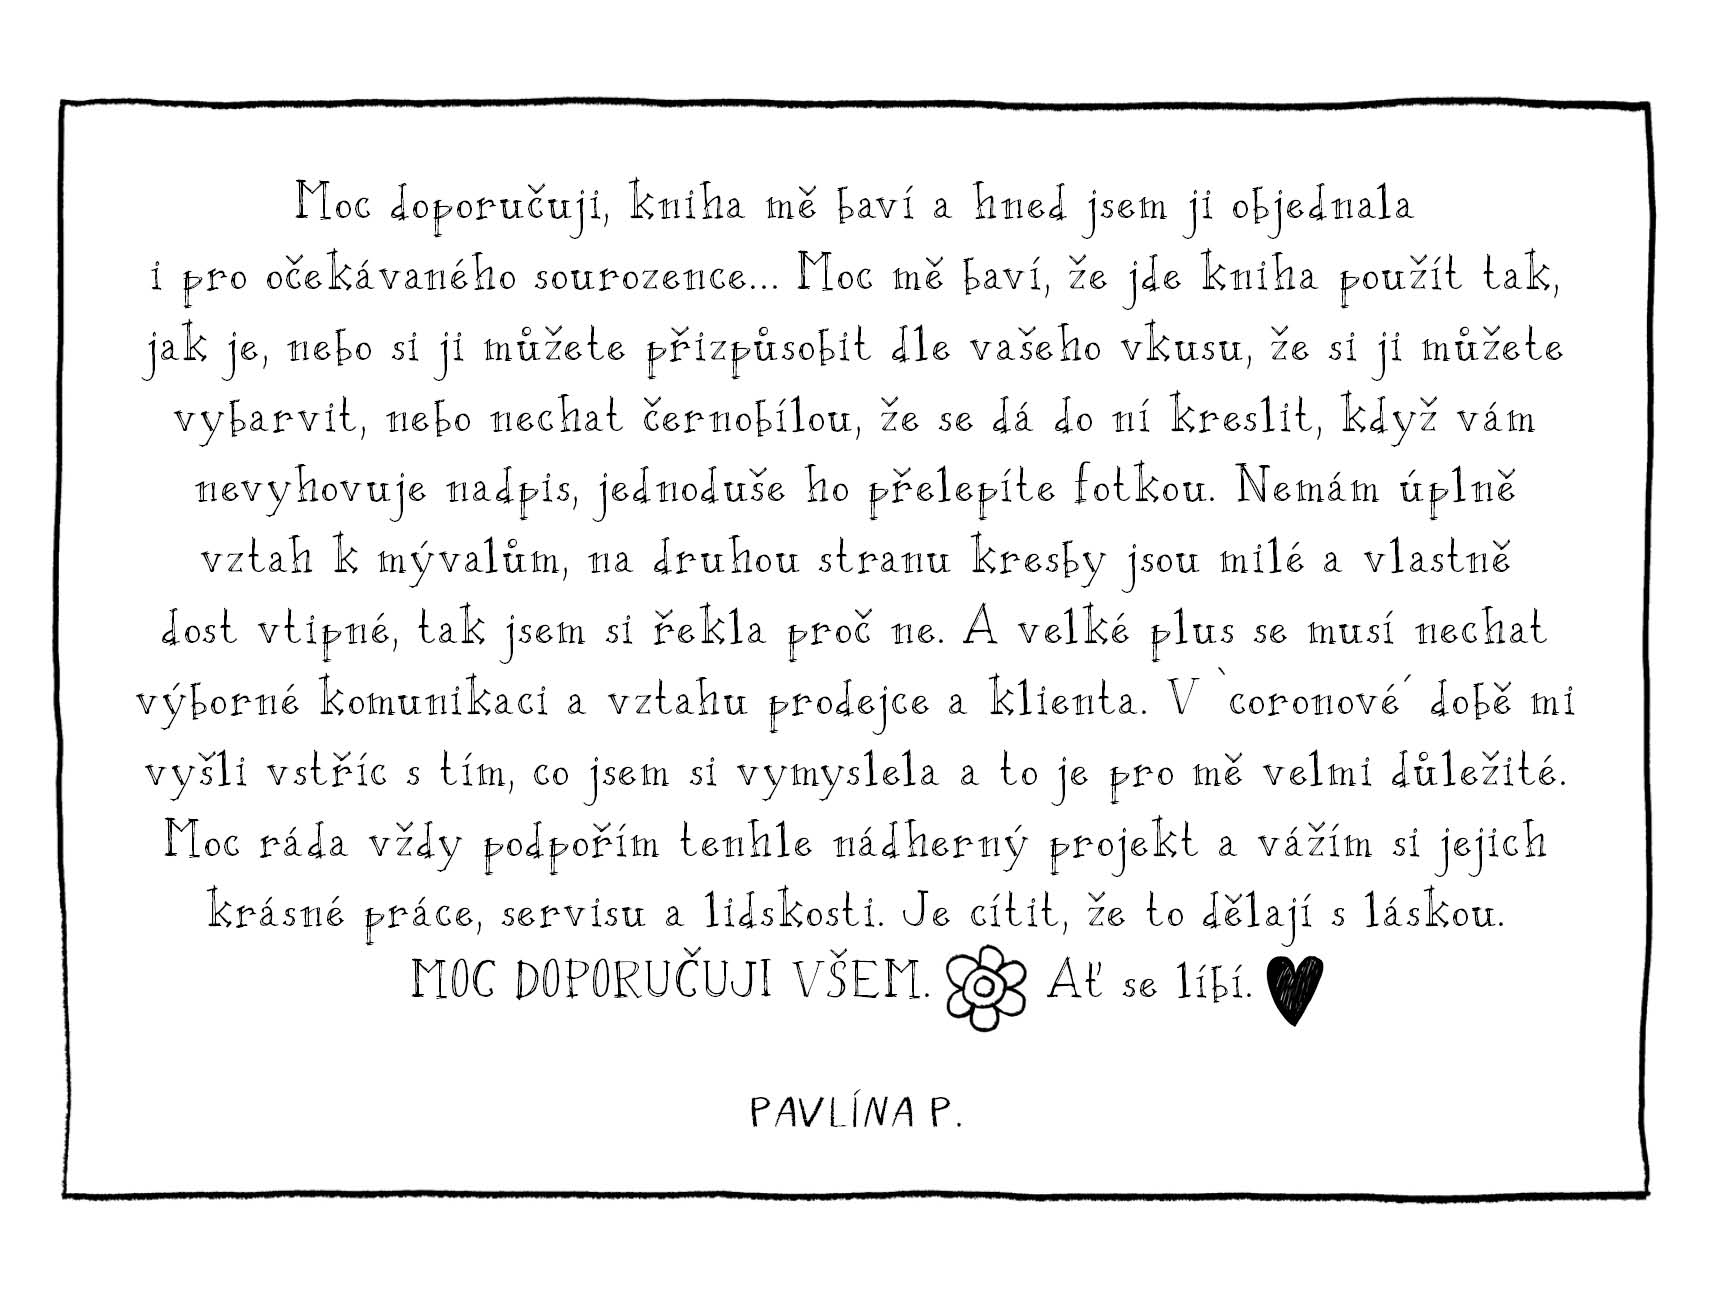 Moc doporučuji, kniha mě baví a hned jsem ji objednala
i pro očekávaného sourozence... Moc mě baví, že jde kniha použít tak,
jak je, nebo si ji můžete přizpůsobit dle vašeho vkusu, že si ji můžete
vybarvit, nebo nechat černobílou, že se dá do ní kreslit, když vám
nevyhovuje nadpis, jednoduše ho přelepíte fotkou. Nemám úplně
vztah k mývalům, na druhou stranu kresby jsou milé a vlastně
dost vtipné, tak jsem si řekla proč ne. A velké plus se musí nechat
výborné komunikaci a vztahu prodejce a klienta. V `coronové´ době mi
vyšli vstříc s tím, co jsem si vymyslela a to je pro mě velmi důležité.
Moc ráda vždy podpořím tenhle nádherný projekt a vážím si jejich
krásné práce, servisu a lidskosti. Je cítit, že to dělají s láskou.
MOC DOPORUČUJI VŠEM. Ať se líbí.
PAVLÍNA P.